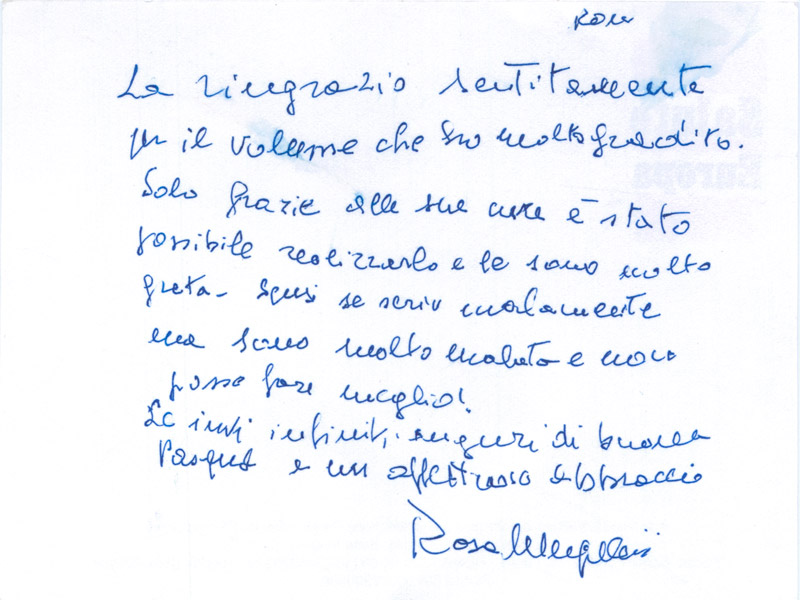 Roma
La ringrazio sentitamente
per il volume che ho molto gradito.
Solo grazie alle sue cure è stato
possibile realizzarlo e le sono molto
grata - Scusi se scrivo malamente
ma sono molto malata e non
posso fare meglio!
Le invii infiniti auguri di buona
Pasqua e un affettuoso abbraccio
Rosa